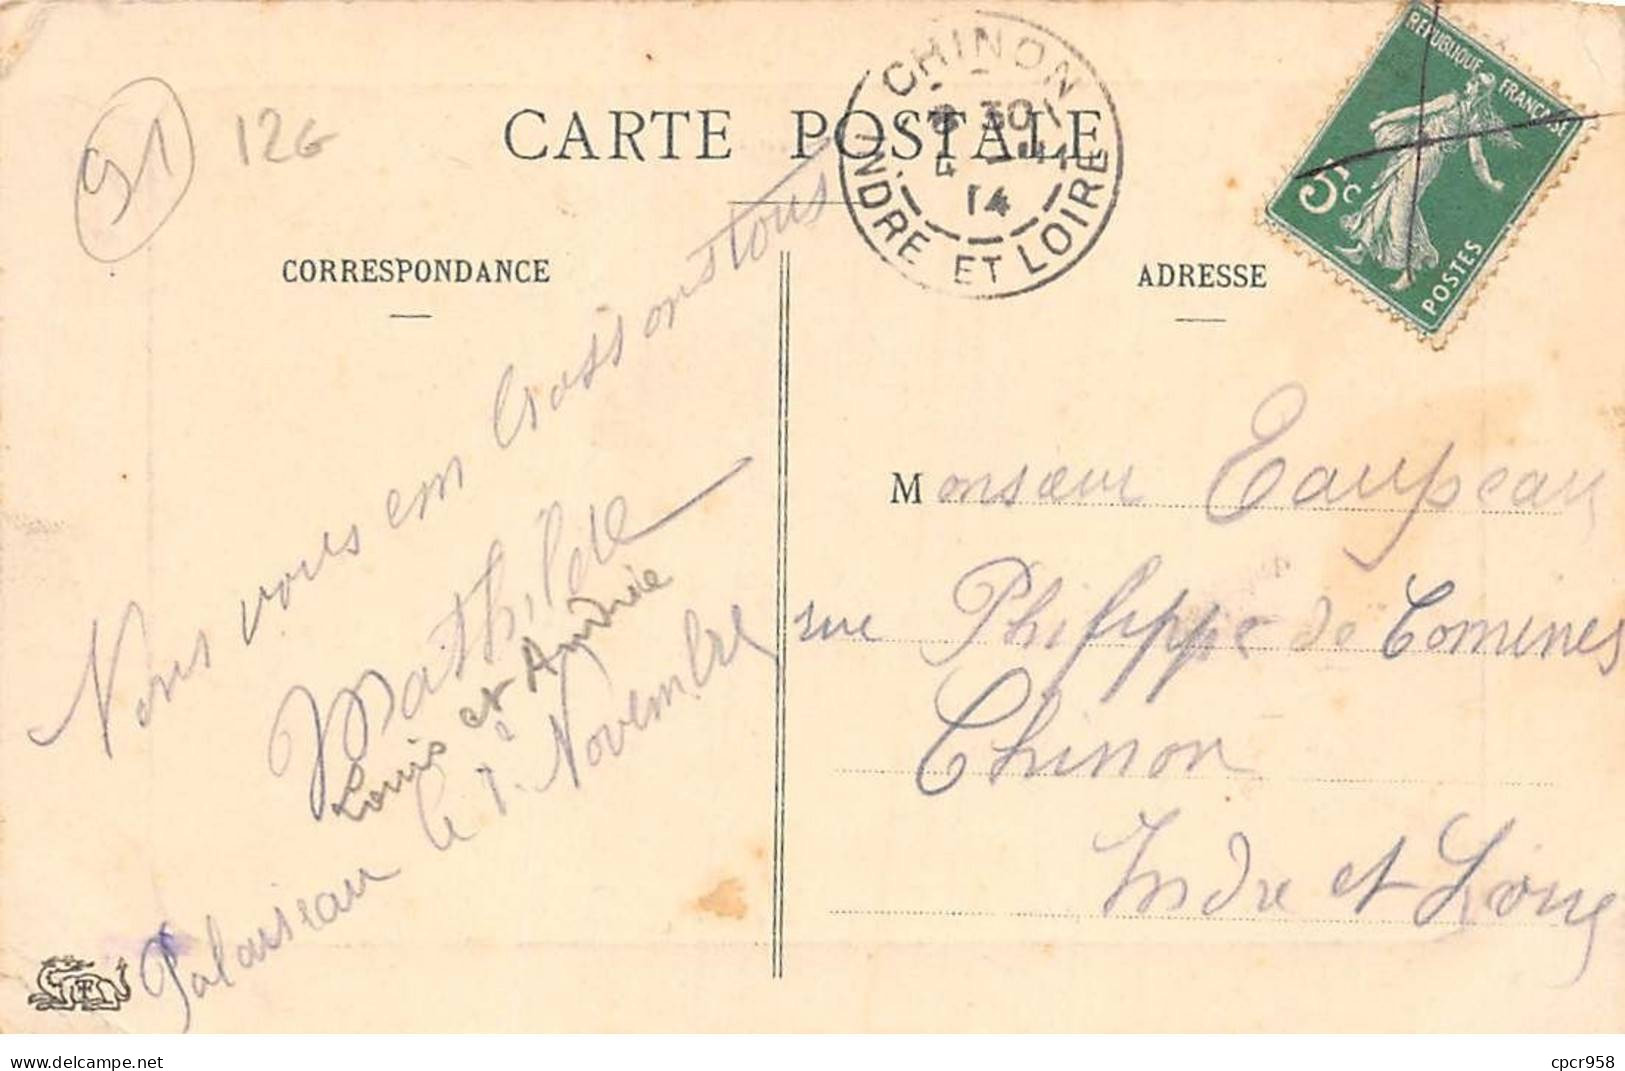 91
12G
CARTE POSTALE
CHINON
30
14
INDRE ET LOIRE
REPUBLIQUE FRANCAISE
5c
POSTES
CORRESPONDANCE
Nous vous em brassons tous
Mathilde
Louis et Andrée
Palaiseau le 1 Novembre
ADRESSE
Monsieur Taupeau
rue Philippe de Comines
Chinon
Indre et Loire
www.delcampe.net
cpcr958